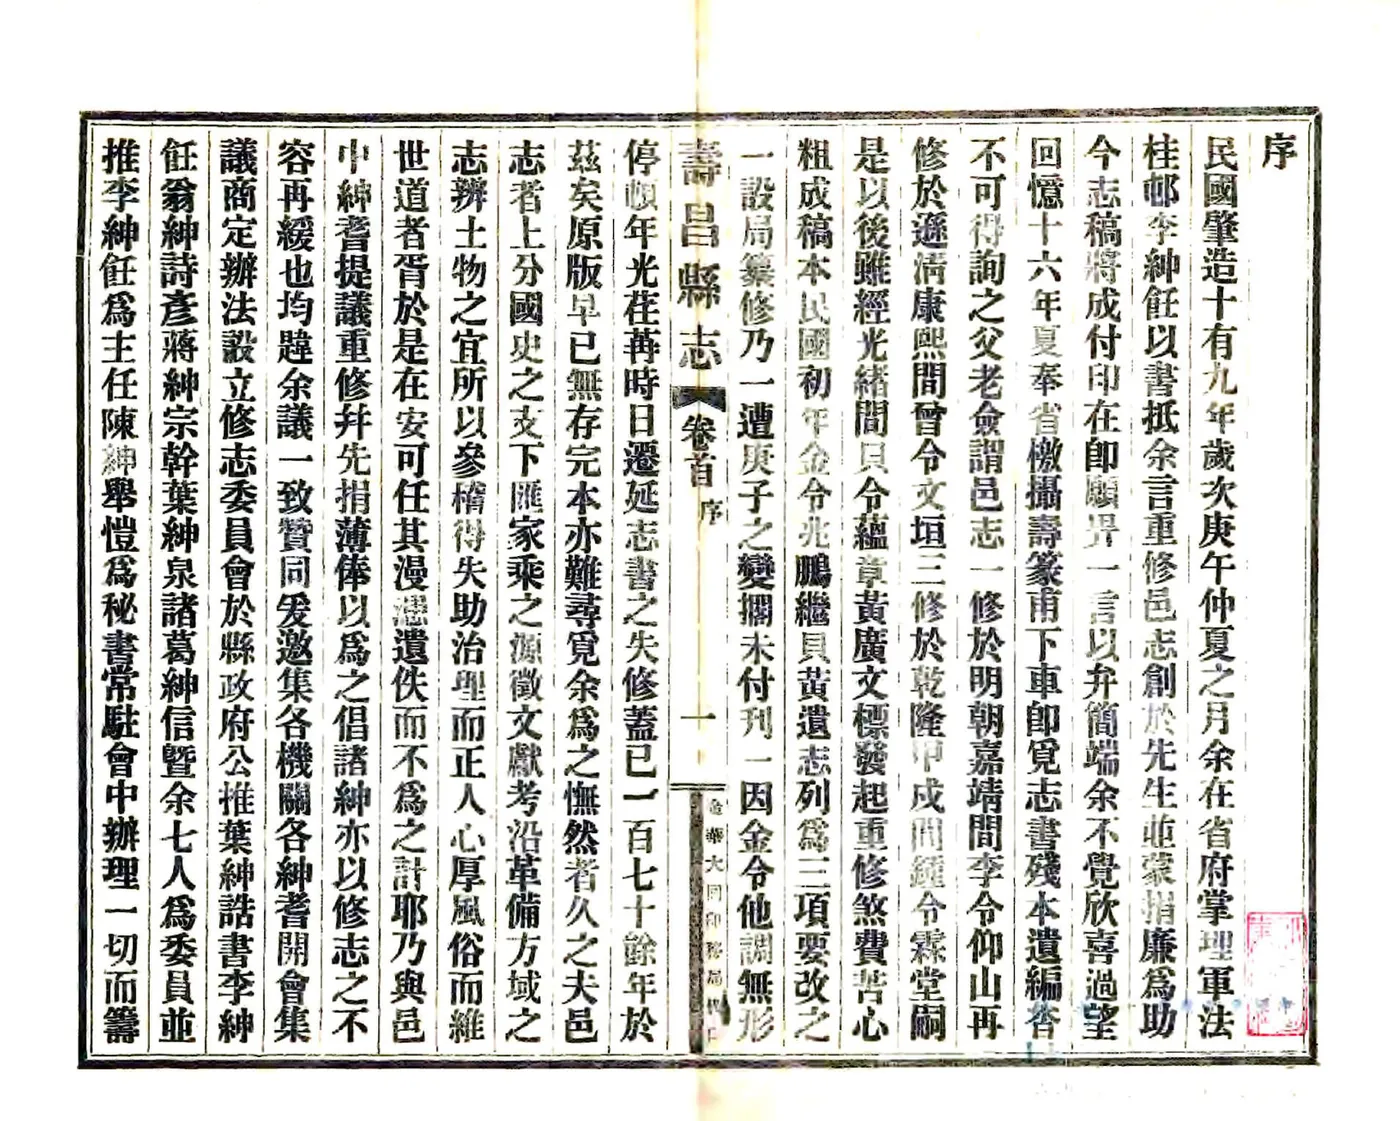 序
民國肇造十有九年歲次庚午仲夏之月余在省府掌理軍法
桂邨李紳飪以書抵余言重修邑志創於先生並蒙指廉爲助
今志稿將成付印在卽願畀一言以弁簡端余不覺欣喜過望
回憶十六年夏奉省檄攝壽篆甫下車卽覓志書殘本遺編杳
不可得詢之父老僉謂邑志一修於明朝嘉靖間李令仰山再
修於遜淸康熙間曾令文垣三修於乾隆甲戌間鍾令霖堂嗣
是以後雖經光緖間貝令蘊章黃廣文標發起重修煞費苦心
粗成稿本民國初年金令兆鵬繼貝黃遺志列爲三項要改之
一設局纂修乃一遭庚子之變擱未付刊一因金令他調無形
壽昌縣志
卷首
序
一
金華大同印務局
停頓年光荏苒時日遷延志書之失修蓋已一百七十餘年於
茲矣原版早已無存完本亦難尋覓余爲之憮然者久之夫邑
志者上分國史之支下匯家乘之源徵文獻考沿革備方域之
志辨土物之宜所以參稽得失助治理而正人心厚風俗而維
世道者胥於是在安可任其漫漶遺佚而不爲之計耶乃與邑
中紳耆提議重修幷先捐薄俸以爲之倡諸紳亦以修志之不
容再緩也均韙余議一致贊同爰邀集各機關各紳耆開會集
議商定辦法設立修志委員會於縣政府公推葉紳誥書李紳
飪翁紳詩彥蔣紳宗幹葉紳泉諸葛紳信曁余七人爲委員並
推李紳飪爲主任陳紳舉愷爲秘書常駐會中辦理一切而籌